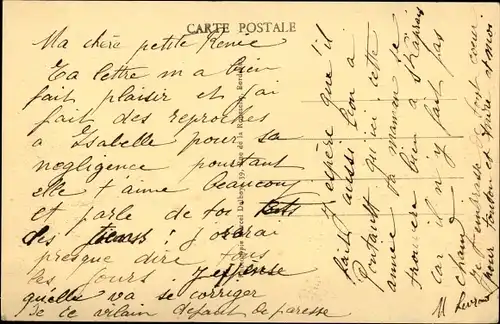 CARTE POSTALE
Ma chère petite Renée
Ta lettre m a bien
fait plaisir et j'ai
fait des reproches
a Isabelle pour sa
negligence pourtant
elle t'aime beaucoup
et parle de toi
des j'orai
presque dire tous
les jours. J espense
quelle va se corriger
de ce vilain defaut de paresse
j'espère qu'il
fait aussi bon a
qu'ici cette
année ta maman se
trouvera bien a
car il n y fait pas
chaud
Je t'embrasse de tout coeur
pour tonton et Marie et moi
M